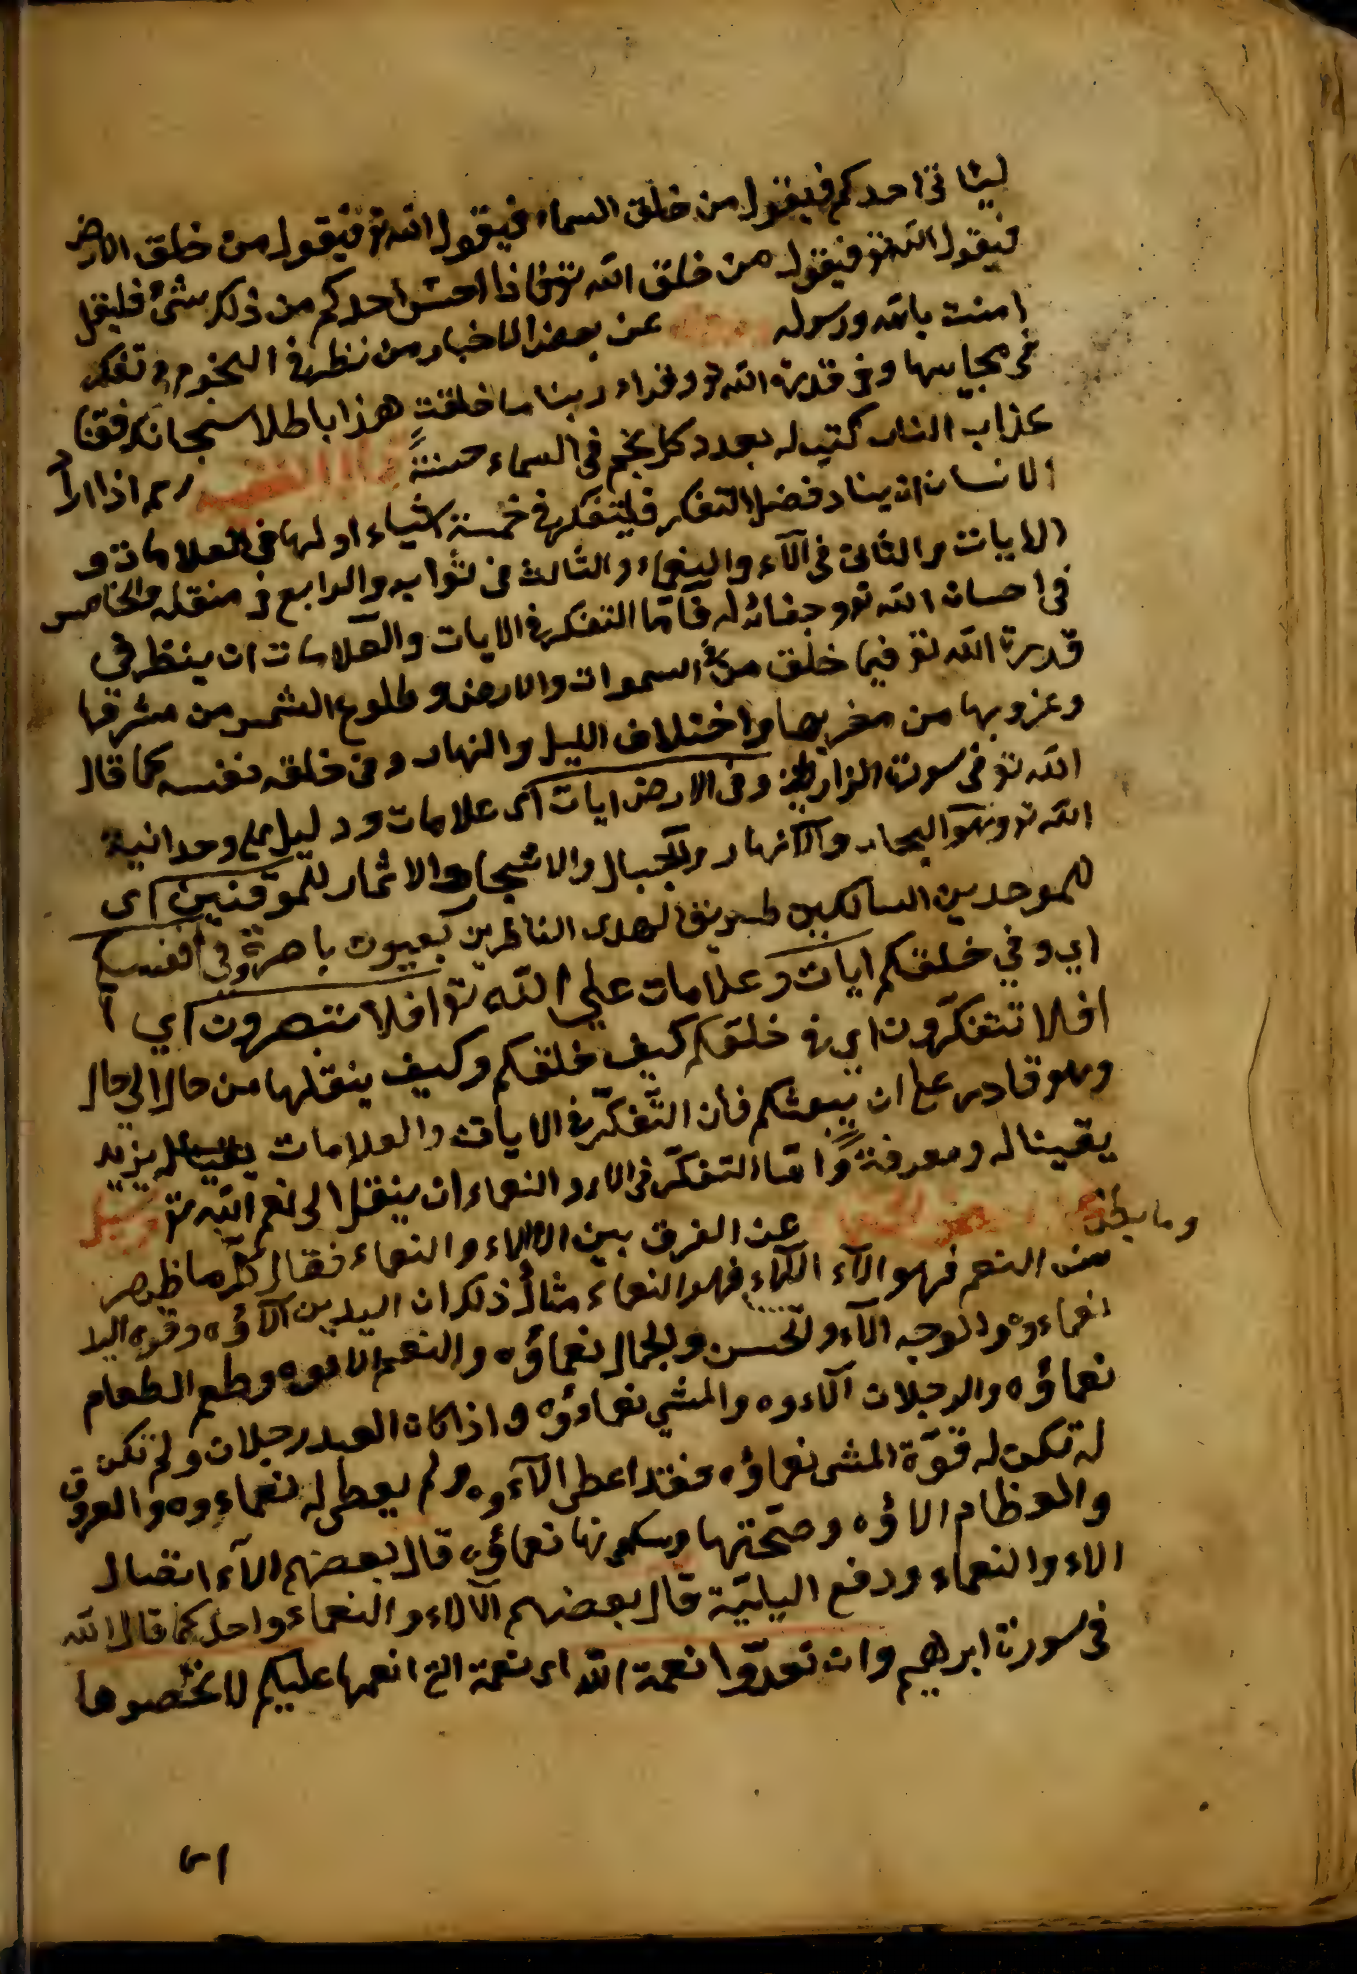 ليئاتى احدكم فيقول من خلق السماء فيقول الله تع فيقول من خلق الارض
فيقول الله تع فيقول من خلق الله تع فاذا احسّ احدكم من ذلك بشئ فليقل
امنت بالله ورسوله عن بعض الاخبار من نظر فى النجوم وتفكر
فى عجايبها وفى قدرة الله تع وقراء ربنا ما خلقت هذا باطلا سبحانك فقنا
عذاب النار كتب له بعدد كل نجم فى السماء حسنةً قال الفقيه رحمه اذا اراد
الانسان ان ينال فضل التفكر فليتفكر فى خمسة اشياء اولها فى العلامات و
الايات والثانى فى الآء والنعماء والثالث فى ثوابه والرابع فى والخامس
فى احسان الله تع وجفائه له فامّا التفكر فى الايات والعلامات ان ينظر فى
قدرة الله تع فيما خلق من السموات والارض وطلوع الشمس من مشرقها
وغروبها من مغربها واختلاف الليل والنهار وفى خلقه نفسه كما قال
الله تع فى سورة الزاريات وفى الارض ايات اى علامات ودليل على وحدانية
الله تع وهو البحار والانهار والجبال والاشجار والاثمار للموقنين اى
للموحدين السالكين طريق الهدى الناظرين بعيون باصرة وفى انفسكم
اي وفي خلقكم ايات وعلامات علي الله تع افلا تبصرون اي ا
افلا تتفكّرون اي فى خلقكم كيف خلقكم وكيف ينقلها من حال الى حال
وهو قادر على ان يبعثكم فان التّفكّر فى الايات والعلامات يزيد
يقينا له ومعرفة وامّا التفكّر فى الاء والنعماء ان ينظر الى نعم الله تع وسئل
عن الفرق بين الالاء والنعماء فقال كلّ ما ظهر
وما بطن
من النعم فهو الآء فهو النعماء مثال ذلك ان اليدين الآؤه وقوة اليد
نعماءوه والوجه الآء والحسن والجمال نعماؤه والفم الاءوه وطعم الطعام
نعماؤه والرجلان الآءوه والمشي نعماءوه واذا كان العبد رجلان ولم تكن
له تكن له قوّة المشى نعماؤه فقد اعطى الآءوه ولم يعطى له نعماءوه والعروق
والعظام الاؤه وصحّتها وسكونها نعماؤه قال بعضهم الآء ايصال
الاء والنعماء ودفع البليّة قال بعضهم الالاء والنعماء واحد كما قال الله
فى سورة ابرهيم وان تعدّوا نعمة الله اى نعمة التى انعمها عليكم لا تحصوها